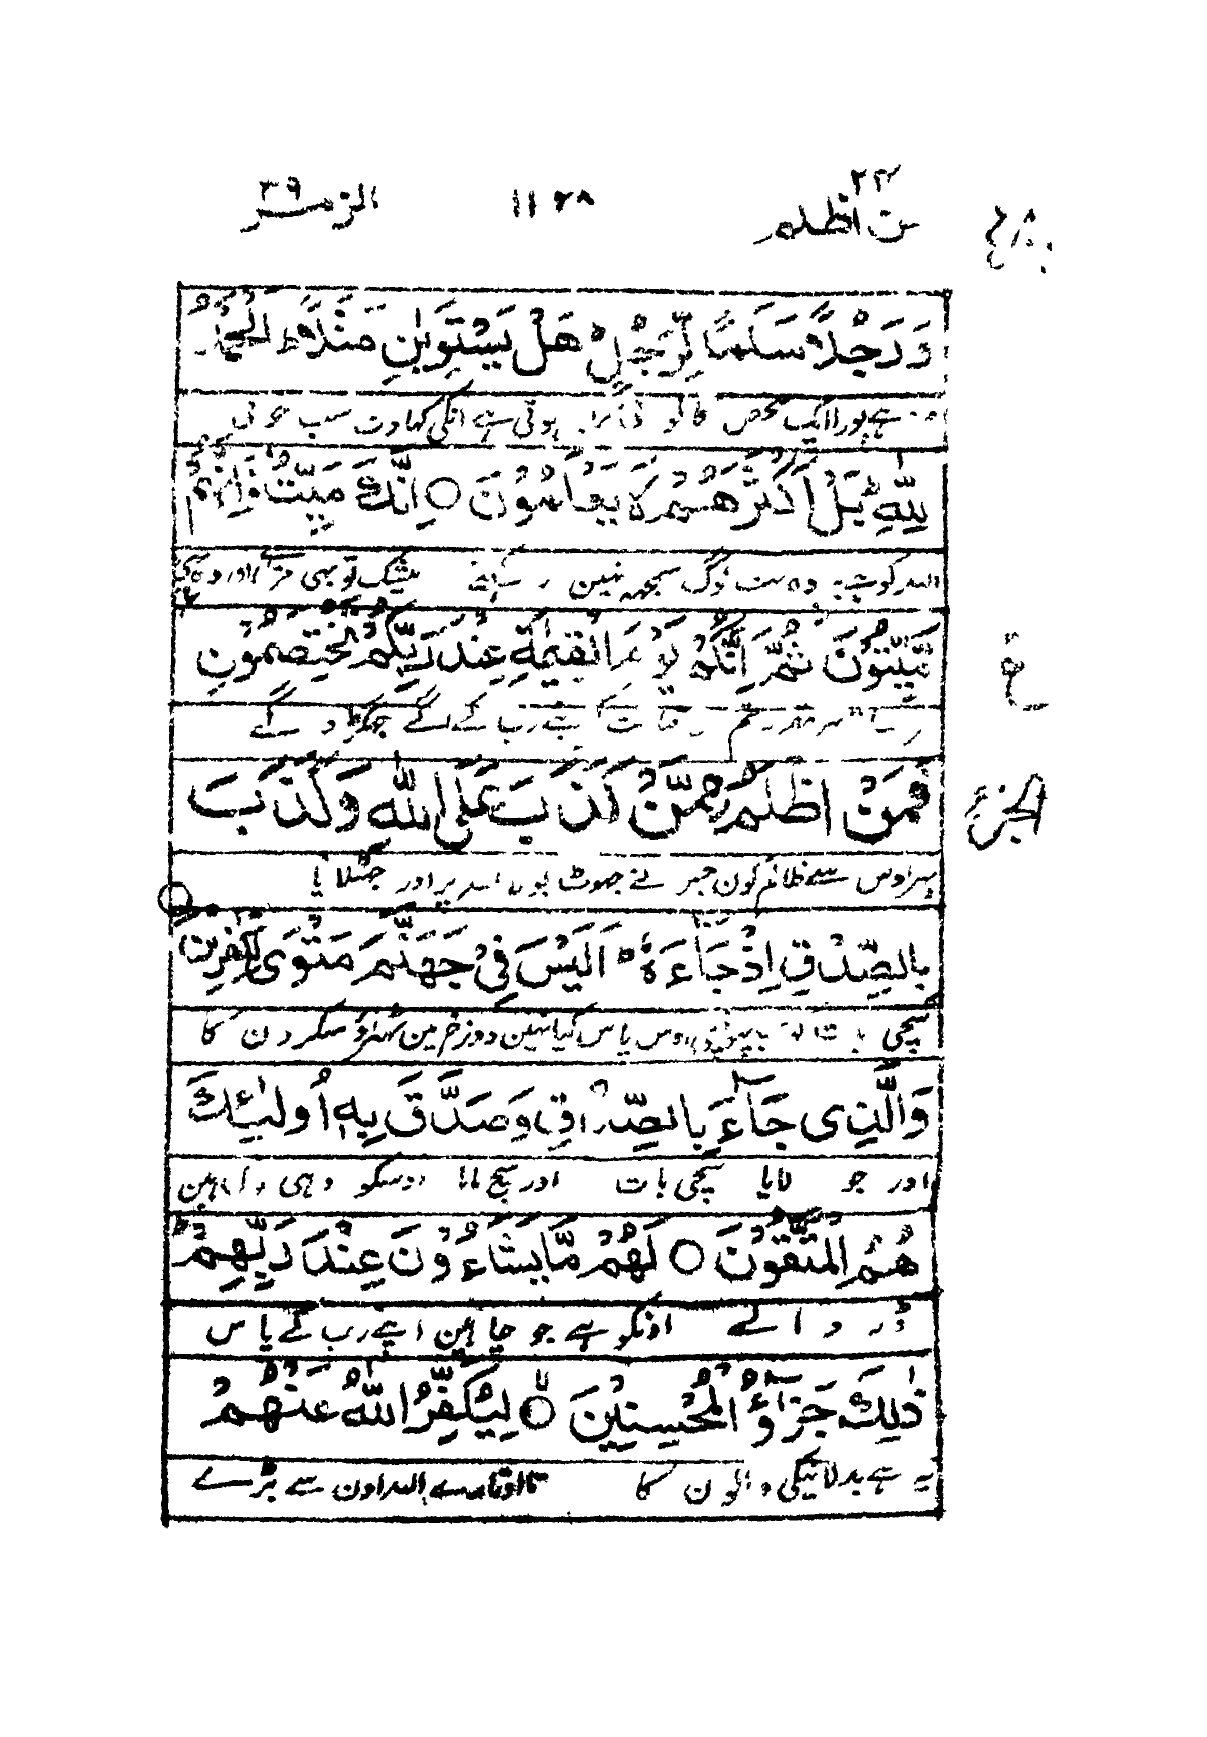 فمن اظلم ٢٤ ١١٢٨ الزمر ٣٩
وَرَجُلًا سَلَمًا لِّرَجُلٍ ط هَلْ يَسْتَوِيٰنِ مَثَلًا ط اَلْحَمْدُ
ہے پورا ایک شخص کا کو ہوتی ہے انکی کہاوت سب خوبی
لِلّٰهِ ج بَلْ اَكْثَرُهُمْ لَا يَعْلَمُوْنَ ○ اِنَّكَ مَيِّتٌ وَّاِنَّهُمْ
اللہ کو ہے لوگ سمجھ نہین رکہتے بیشک تو بھی مرتا اور وہ بھی
مَّيِّتُوْنَ ثُمَّ اِنَّكُمْ يَوْمَ الْقِيٰمَةِ عِنْدَ رَبِّكُمْ تَخْتَصِمُوْنَ
رب کے آگے جھگڑو گے
ع
فَمَنْ اَظْلَمُ مِمَّنْ كَذَبَ عَلَى اللّٰهِ وَكَذَّبَ
الجزء
پہر اوس سے ظالم کون جس نے جھوٹ بولا اللہ پر اور جھٹلایا
بِالصِّدْقِ اِذْ جَآءَهٗ ط اَلَيْسَ فِيْ جَهَنَّمَ مَثْوًى لِّلْكٰفِرِيْنَ
سچی پاس کیا نہین دوزخ مین ٹھہراؤ منکرون کا
وَالَّذِيْ جَآءَ بِالصِّدْقِ وَصَدَّقَ بِهٖٓ اُولٰٓئِكَ
اور جو لایا سچی بات اور سچ مانا اوسکو وہی
هُمُ الْمُتَّقُوْنَ ○ لَهُمْ مَّا يَشَآءُوْنَ عِنْدَ رَبِّهِمْ ط
ڈر والے اونکو ہے جو چاہین اپنے رب کے پاس
ذٰلِكَ جَزٰٓؤُا الْمُحْسِنِيْنَ ○ لِيُكَفِّرَ اللّٰهُ عَنْهُمْ
یہ ہے بدلا نیکی والون کا تا اوتارے اللہ اون سے بڑے